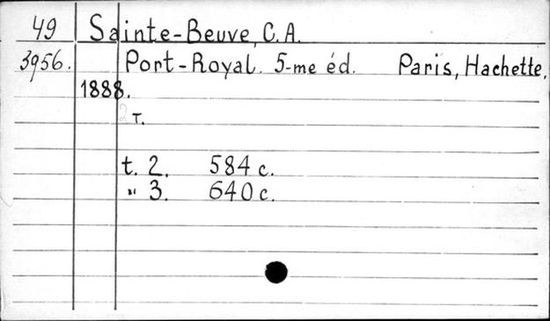 49 Sainte-Beuve, C.A.
3956. Port-Royal. 5-me éd. Paris, Hachette,
1888.
T.
t. 2. 584 c.
" 3. 640 c.